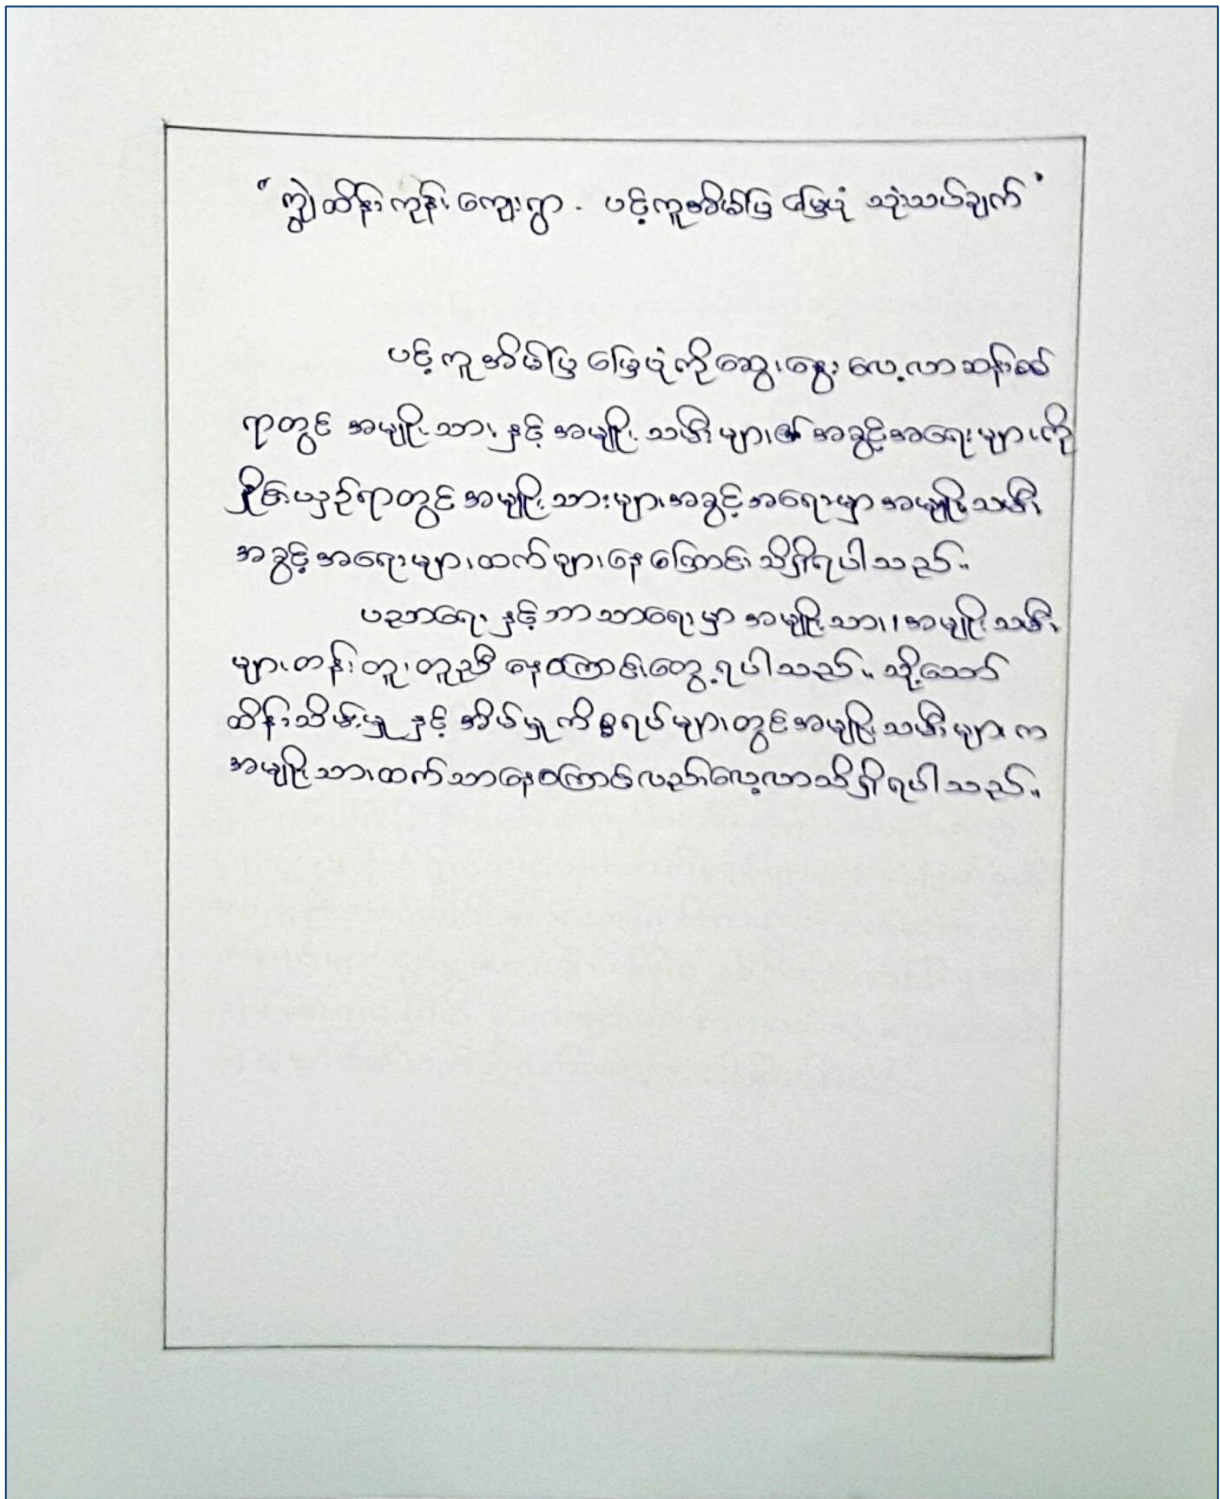 “ ကျွဲထိန်းကုန်းကျေးရွာ - ပင့်ကူအိမ်ပြ မြေပုံ သုံးသပ်ချက် ”
ပင့်ကူအိမ်ပြ မြေပုံကိုဆွေးနွေး လေ့လာဆန်းစစ်
ရာတွင် အမျိုးသား နှင့် အမျိုးသမီးများ၏ အခွင့်အရေးများကို
နှိုင်းယှဉ်ရာတွင် အမျိုးသားများအခွင့်အရေးမှာ အမျိုးသမီး
အခွင့်အရေးများထက် များနေကြောင်း သိရှိရပါသည်။
ပညာရေး နှင့် ဘာသာရေးမှာ အမျိုးသား၊ အမျိုးသမီး
များတန်းတူ၊ တူညီနေကြောင်းတွေ့ရပါသည်။ သို့သော်
ထိန်းသိမ်းမှု နှင့် အိမ်မှုကိစ္စရပ်များတွင် အမျိုးသမီးများက
အမျိုးသားထက်သာနေကြောင်းလည်းလေ့လာသိရှိရပါသည်။